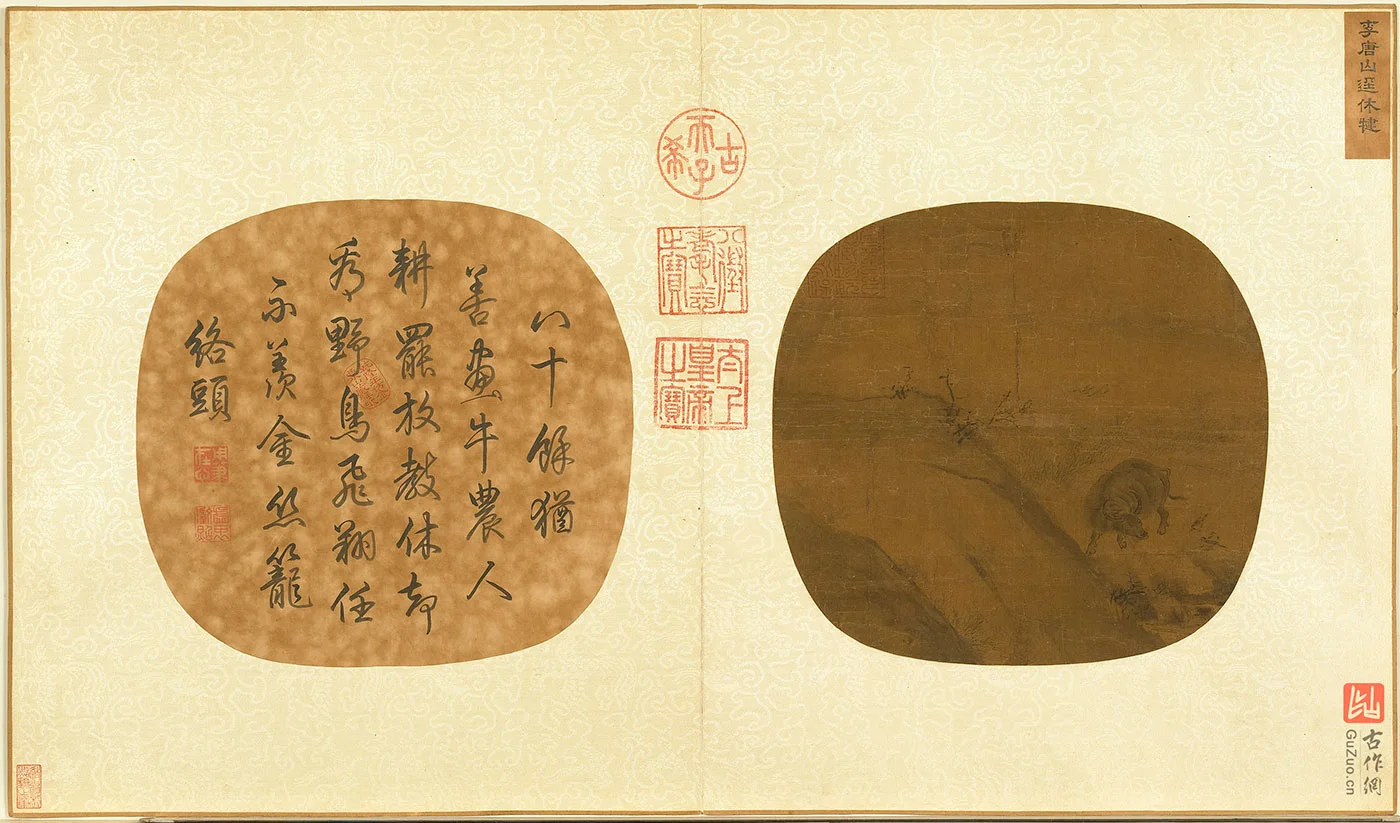 李唐山逕休犍
古希天子
八徵
耄念
之寶
太上
皇帝
之寶
八十餘猶
善畫牛農人
耕罷放教休却
看野鳥飛翔任
不羨金絲籠
絡頭
古作網
GuZuo.cn